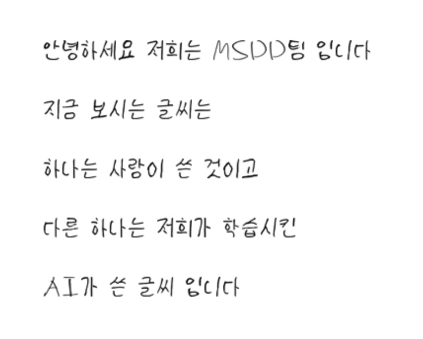 안녕하세요 저희는 MSDD팀 입니다
지금 보시는 글씨는
하나는 사람이 쓴 것이고
다른 하나는 저희가 학습시킨
AI가 쓴 글씨 입니다